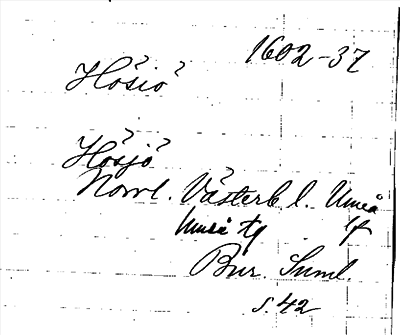 1602-37
Hösiö
Hösjö
Norrl. Västerb l. Umeå
Umeå tg lf
Bur. Suml.
s. 42